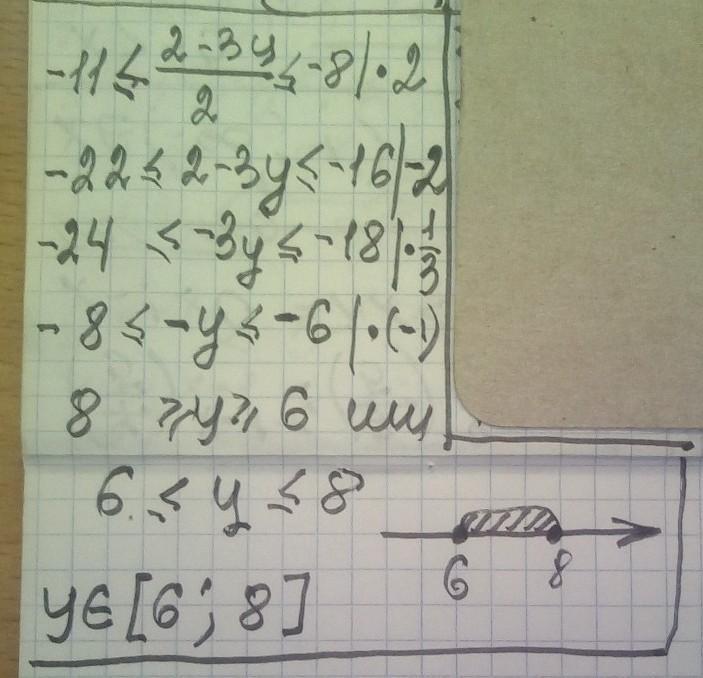 -11 ≤ (2-3y)/2 ≤ -8 | · 2
-22 ≤ 2-3y ≤ -16 | -2
-24 ≤ -3y ≤ -18 | · 1/3
-8 ≤ -y ≤ -6 | · (-1)
8 ⩾ y ⩾ 6 или
6 ≤ y ≤ 8
6 8
y∈[6; 8]